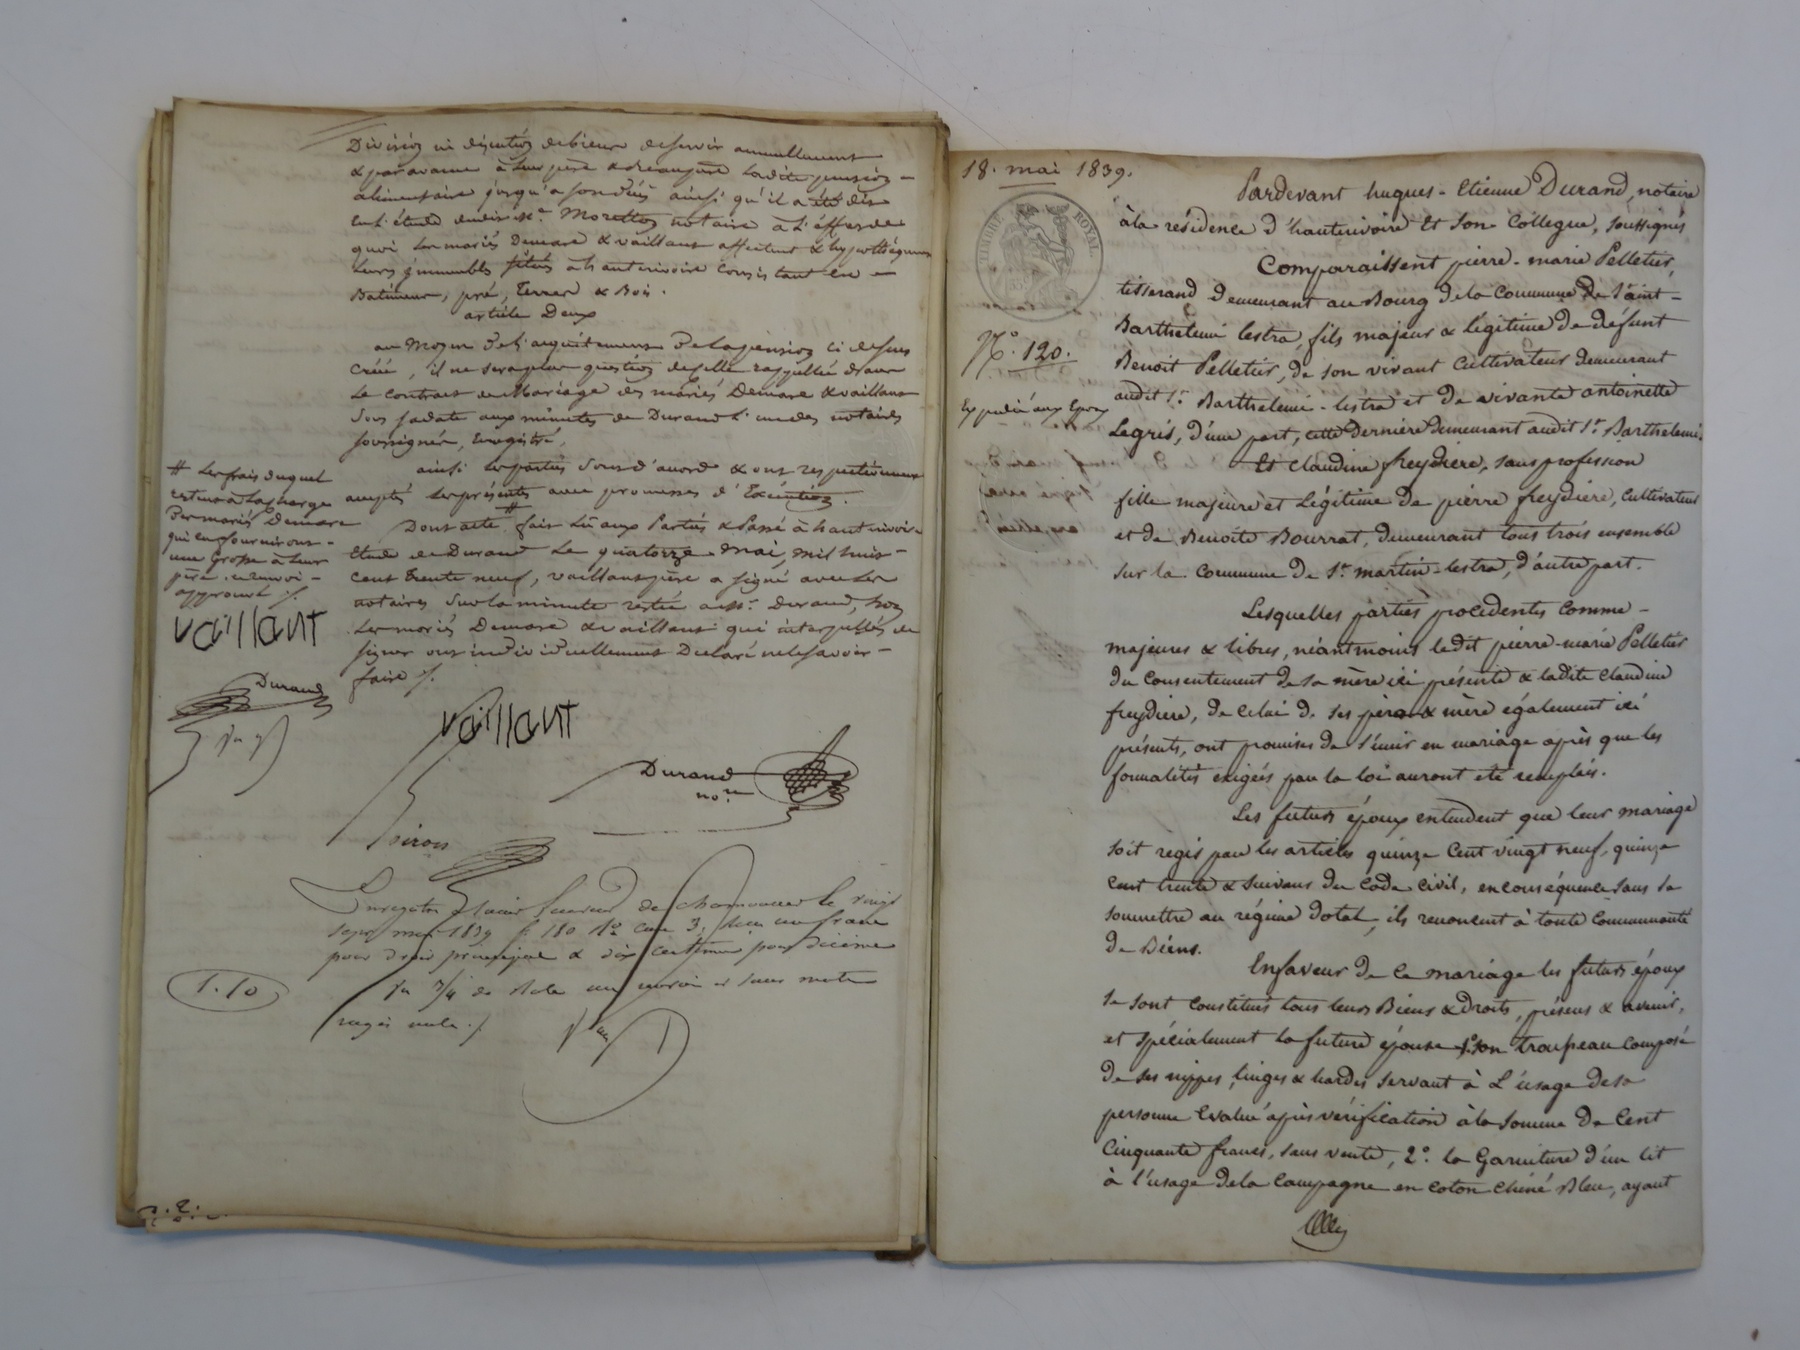 Division ni discution de biens de servir annuellement
& par avance à leur père & beaupère ladite pension
alimentaire jusqu'à son décès ainsi qu'il a été dit
en l'étude dudit Me. Moretton notaire à l'effet de
quoi les mariés Demare & vaillant affectent & hypothèquent
leurs immeubles situés à hauterivoire consistant en
Batimens, pré, Terres & Bois.
article Deux
au Moyen de l'acquittement de la pension ci dessus
créée, il ne sera plus question de celle rappellée dans
le contrat de Mariage des mariés Demare & vaillant
sous sa date aux minutes de Durand l'un des notaires
soussignés, Enregistré.
ainsi les parties sont d'accord & ont respectivement
accepté les présentes avec promesses d'Exécution.
Dont acte # fait Lu aux Parties & Passé à hauterivoire
Etude de Durand Le quatorze mai, mil huit-
cent trente neuf, vaillant père a signé avec les
notaires sur la minute restée à Me. Durand, non
les mariés Demare & vaillant qui interpellés de
signer ont individuellement Déclaré ne le savoir
faire ./.
# les frais duquel
estent à la charge
des mariés Demare
qui en fourniront
une Grosse à leur
père. renvoi
approuvé ./.
vaillant
Durand
vaillant
Durand
nore
Enregistré à Saint Laurent de Chamousset le vingt
sept mai 1839 f. 180 Ro. Case 3, Reçu un franc
pour droit principal & dix centimes pour décime
un renvoi et sans mots
rayés nuls ./.
1.10
18. mai 1839.
TIMBRE ROYAL
No. 120.
Expédié aux Epoux
Pardevant hugues-Etienne Durand, notaire
à la résidence d'hauterivoire et son Collegue, soussignés
Comparaissent pierre-marie Pelletier,
tisserand demeurant au Bourg de la Commune de Saint-
Barthelemi lestra, fils majeur & légitime de défunt
Benoit Pelletier, de son vivant Cultivateur demeurant
audit St. Barthelemi-lestra et de vivante antoinette
Legris, d'une part, cette dernière demeurant audit St. Barthelemi.
Et Claudine freydière, sans profession
fille majeure et Légitime de pierre freydière, Cultivateur
et de Benoîte Bourrat, demeurant tous trois ensemble
sur la Commune de St. martin-lestra, d'autre part.
Lesquelles parties procedentes comme
majeures & libres, néantmoins ledit pierre-marie Pelletier
du consentement de sa mère ici présente & ladite Claudine
freydiere, de celui de ses père & mère également ici
présents, ont promises de s'unir en mariage après que les
formalités exigées par la loi auront été remplies.
Les futurs époux entendent que leur mariage
soit régis par les articles quinze cent vingt neuf, quinze
cent trente & suivans du Code civil, en conséquence sans se
soumettre au régime dotal, ils renoncent à toute Communauté
de Biens.
En faveur de ce mariage les futurs époux
se sont constitués tous leurs Biens & Droits, présens & avenir,
et spécialement la future épouse 1o. son trousseau composé
de ses nippes, linges & hardes servant à L'usage de sa
personne Evalué après vérification à la somme de Cent
Cinquante francs, sans vente, 2o. la Garniture d'un lit
à l'usage de la Campagne en coton chiné Bleu, ayant